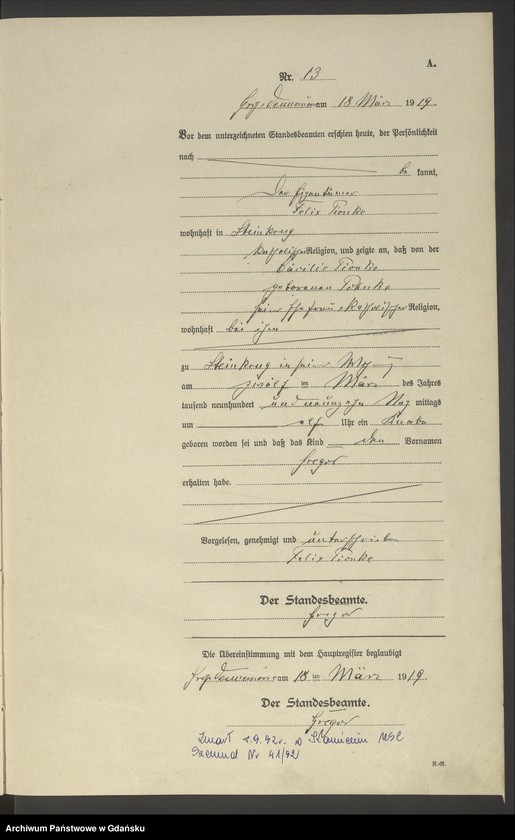 A.
Nr. 13
am 18 März 1919.
Vor dem unterzeichneten Standesbeamten erschien heute, der Persönlichkeit
nach
be kannt,
Der Eigentümer
Felix Pionke
wohnhaft in Steinkrug
katholischer Religion, und zeigte an, daß von der
Cäcilie Pionke
geborenen
seiner Ehefrau katholischer Religion,
wohnhaft bei ihm
zu Steinkrug in seiner Wohnung
am zwölf ten März des Jahres
tausend neunhundert und neunzehn Nach mittags
um elf Uhr ein Knabe
geboren worden sei und daß das Kind den Vornamen
Gregor
erhalten habe.
Vorgelesen, genehmigt und unterschrieben
Felix Pionke
Der Standesbeamte.
Gregor
Die Übereinstimmung mit dem Hauptregister beglaubigt
am 18 ten März 1919.
Der Standesbeamte.
Gregor
Zmarł 2.9.92r. w USC
Szemud Nr 41/92
Archiwum Państwowe w Gdańsku